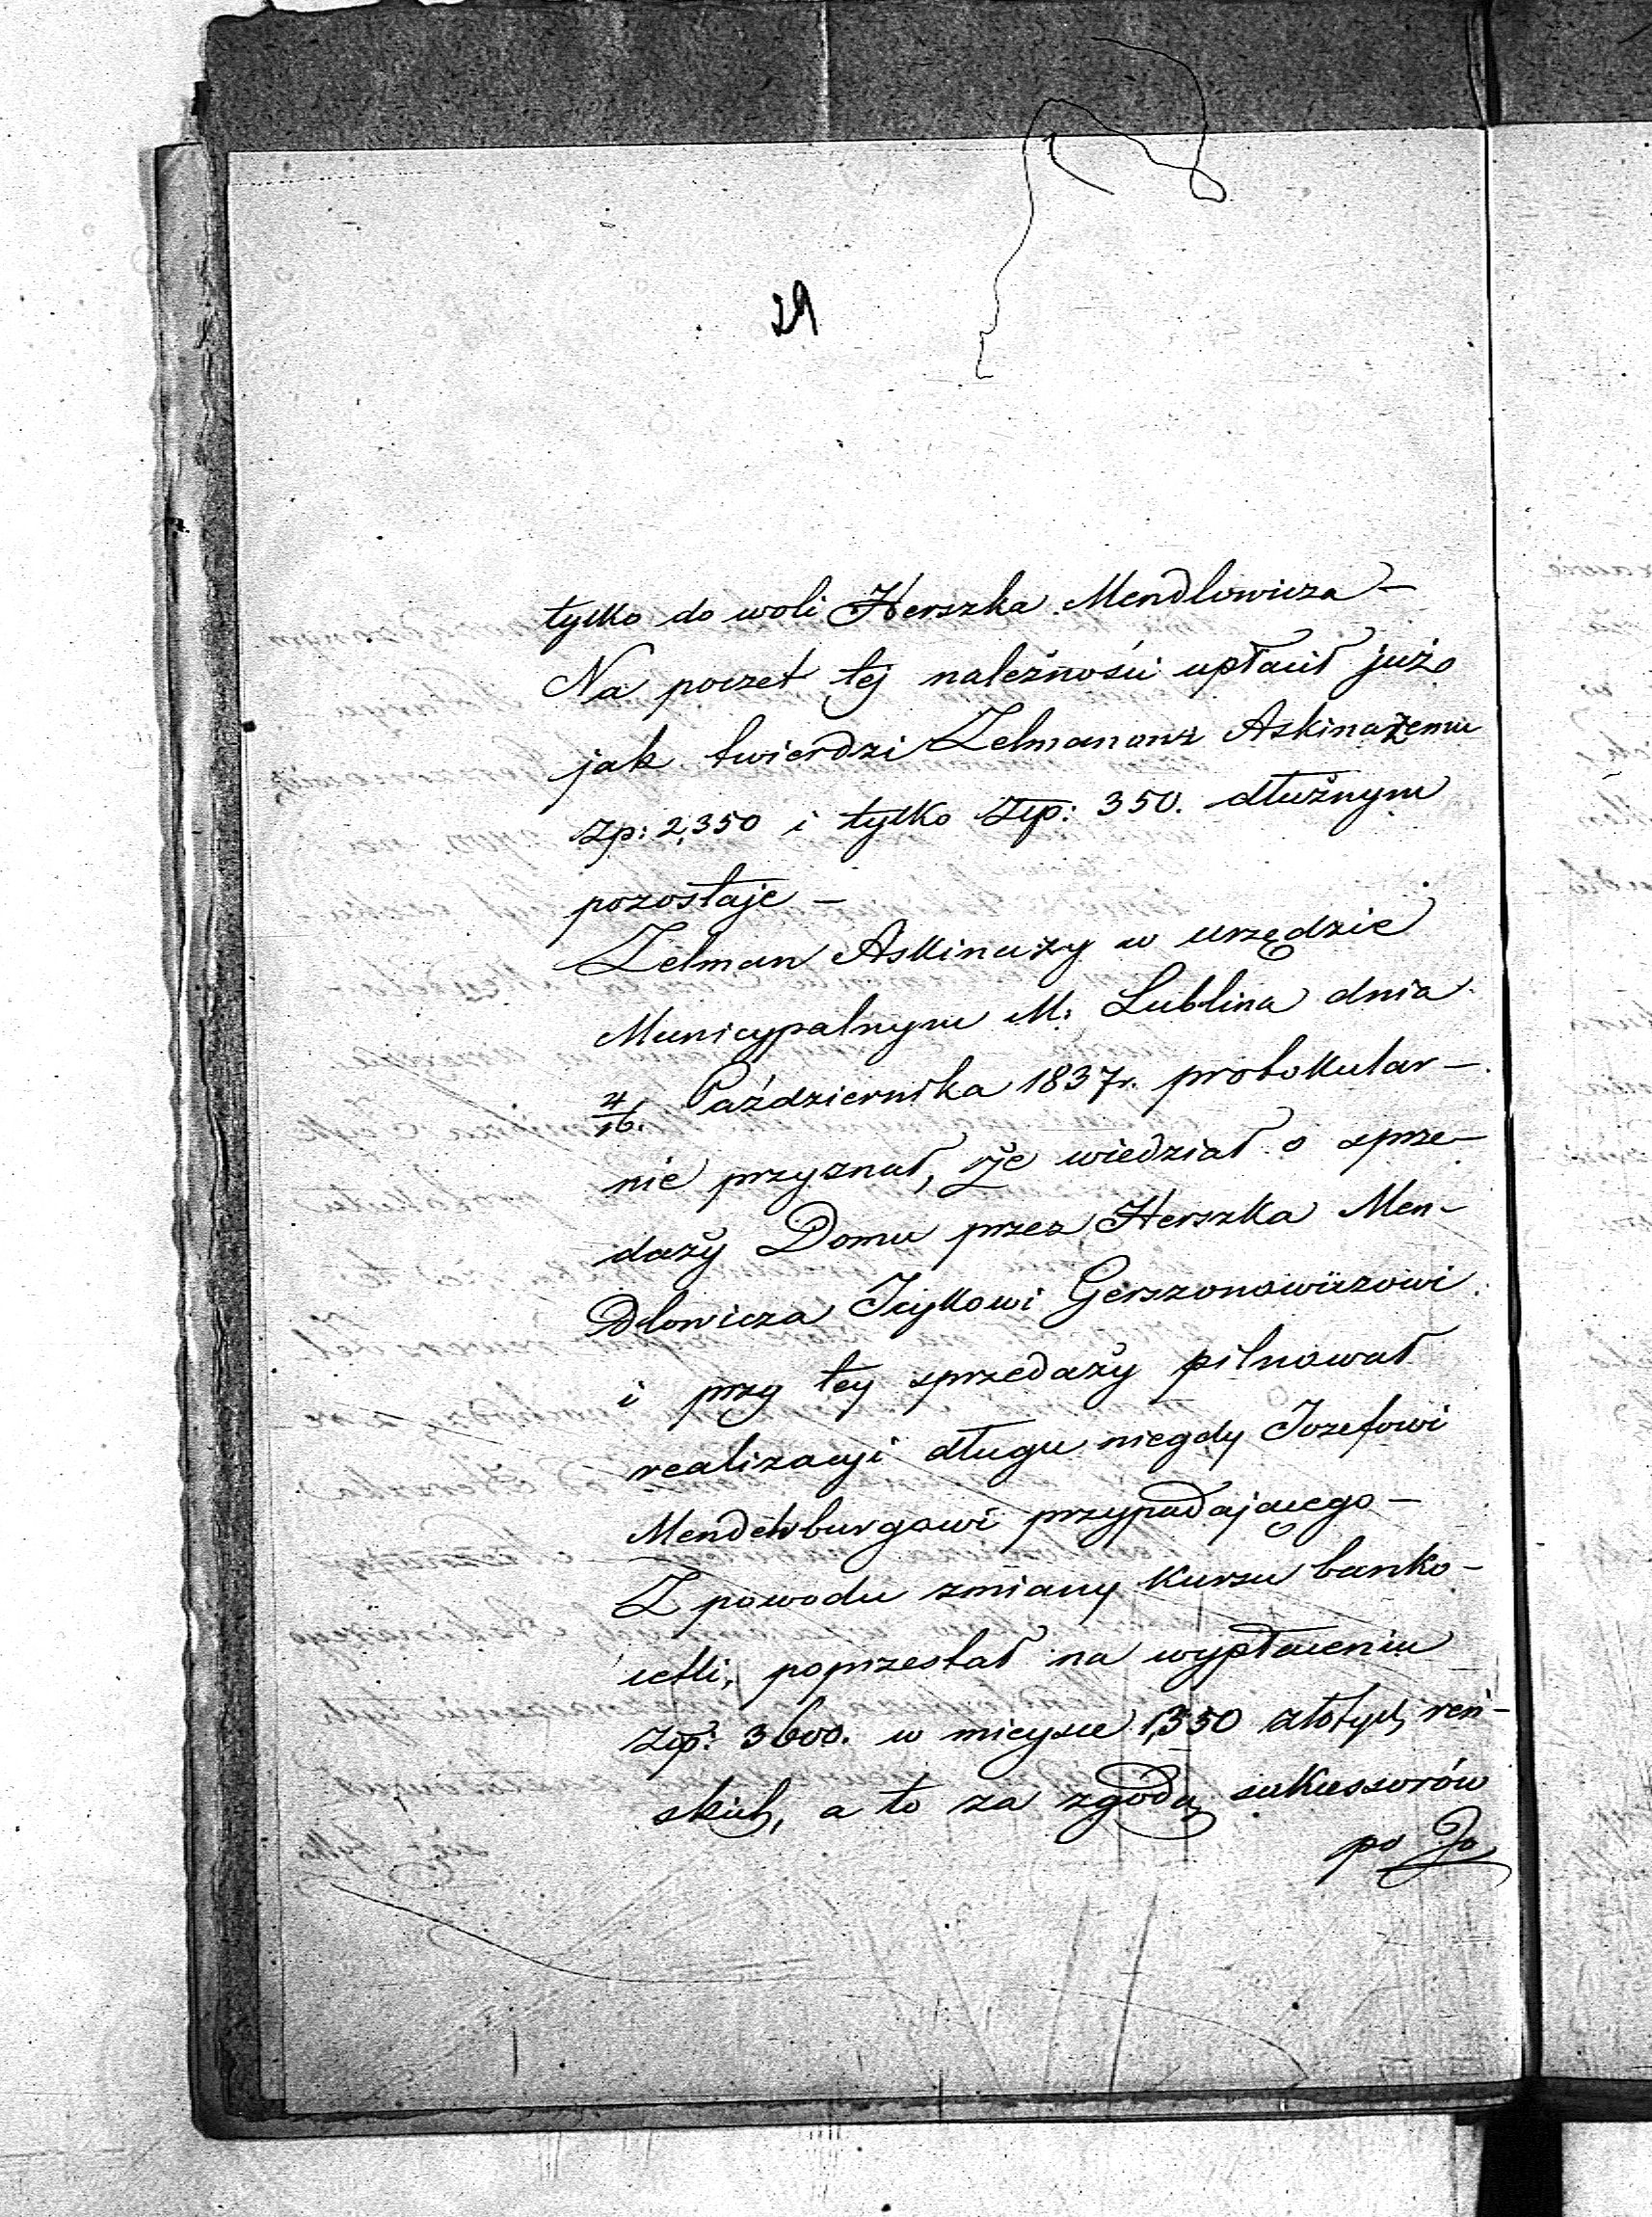 29
tylko do woli Herszka Mendlowicza —
Na poczet tej należności upłacił już
jak twierdzi Zelmanowi Askinażemu
Zp: 2,350 i tylko Złp: 350. dłużnym
pozostaje —
Zelman Askinazy w urzędzie
Municypalnym M: Lublina dnia
4/16. Października 1837r. protokular-
nie przyznał, że wiedział o sprze-
daży Domu przez Herszka Men-
dlowicza Icykowi Gerszonowiczowi
i przy tey sprzedaży pilnował
realizacyi długu niegdy Jozefowi
przypadającego —
Z powodu zmiany kursu banko-
cetli, poprzestał na wypłaceniu
Złp: 3600. w mieysce 1,350 złotych reń-
skich, a to za zgodą sukcessorów
po Jo